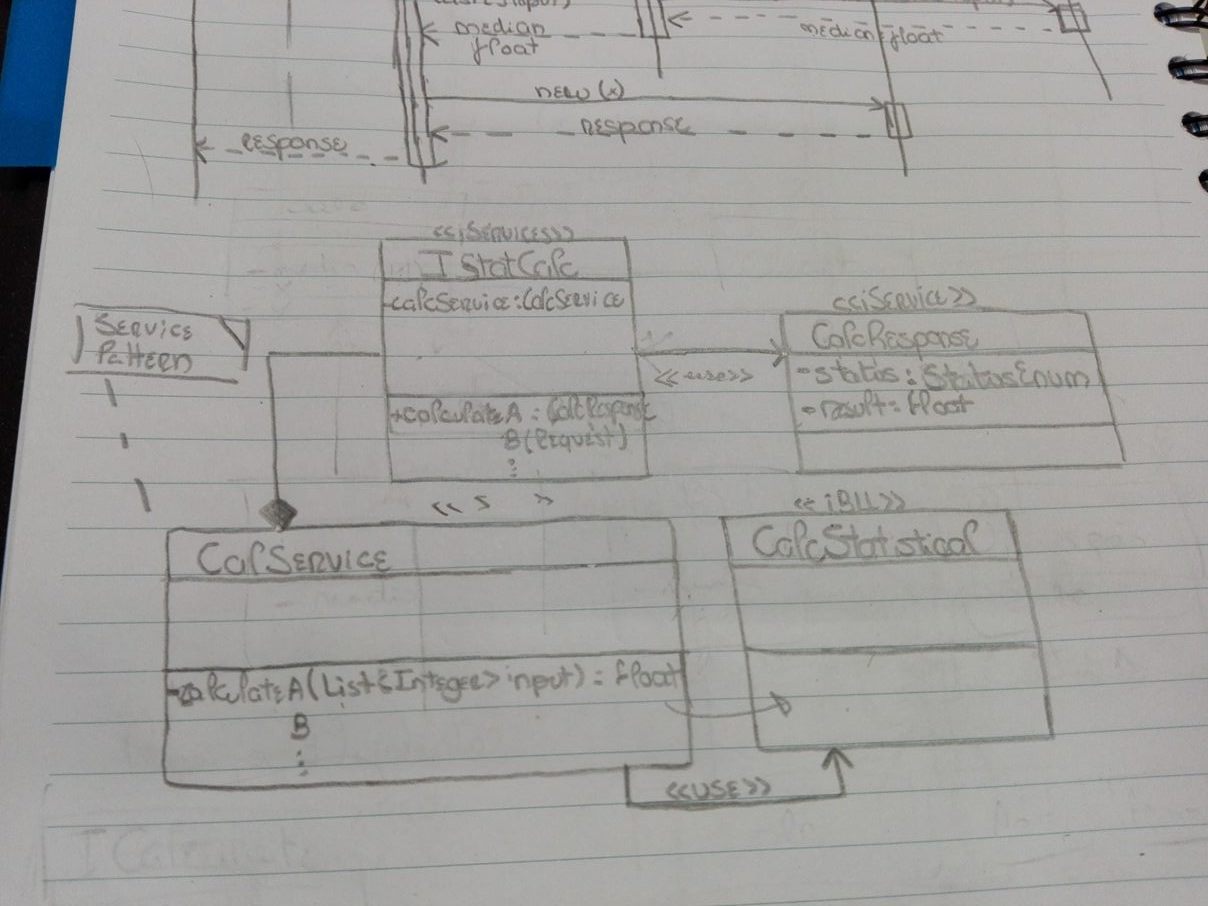 median
float
median float
new(x)
Response
Response
<<iServices>>
IStatCalc
-calcService:CalcService
+calculateA : CalcResponse
B(Request)
:
Service
Pattern
<<use>>
<<iService>>
CalcResponse
-status: StatusEnum
-result: float
<< S >>
CalService
-calculateA(List<Integer> input) : float
B
:
<<iBLL>>
CalcStatistical
<<USE>>